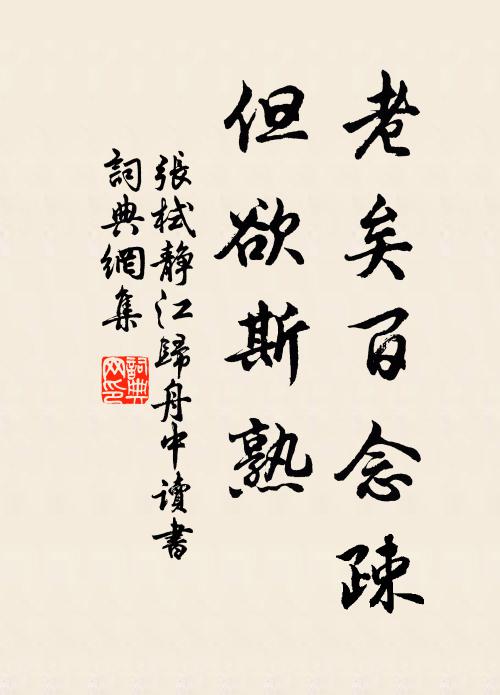 老矣百念疎
但欲斯熟
張栻靜江歸舟中讀書
詞典網集
詞典网印